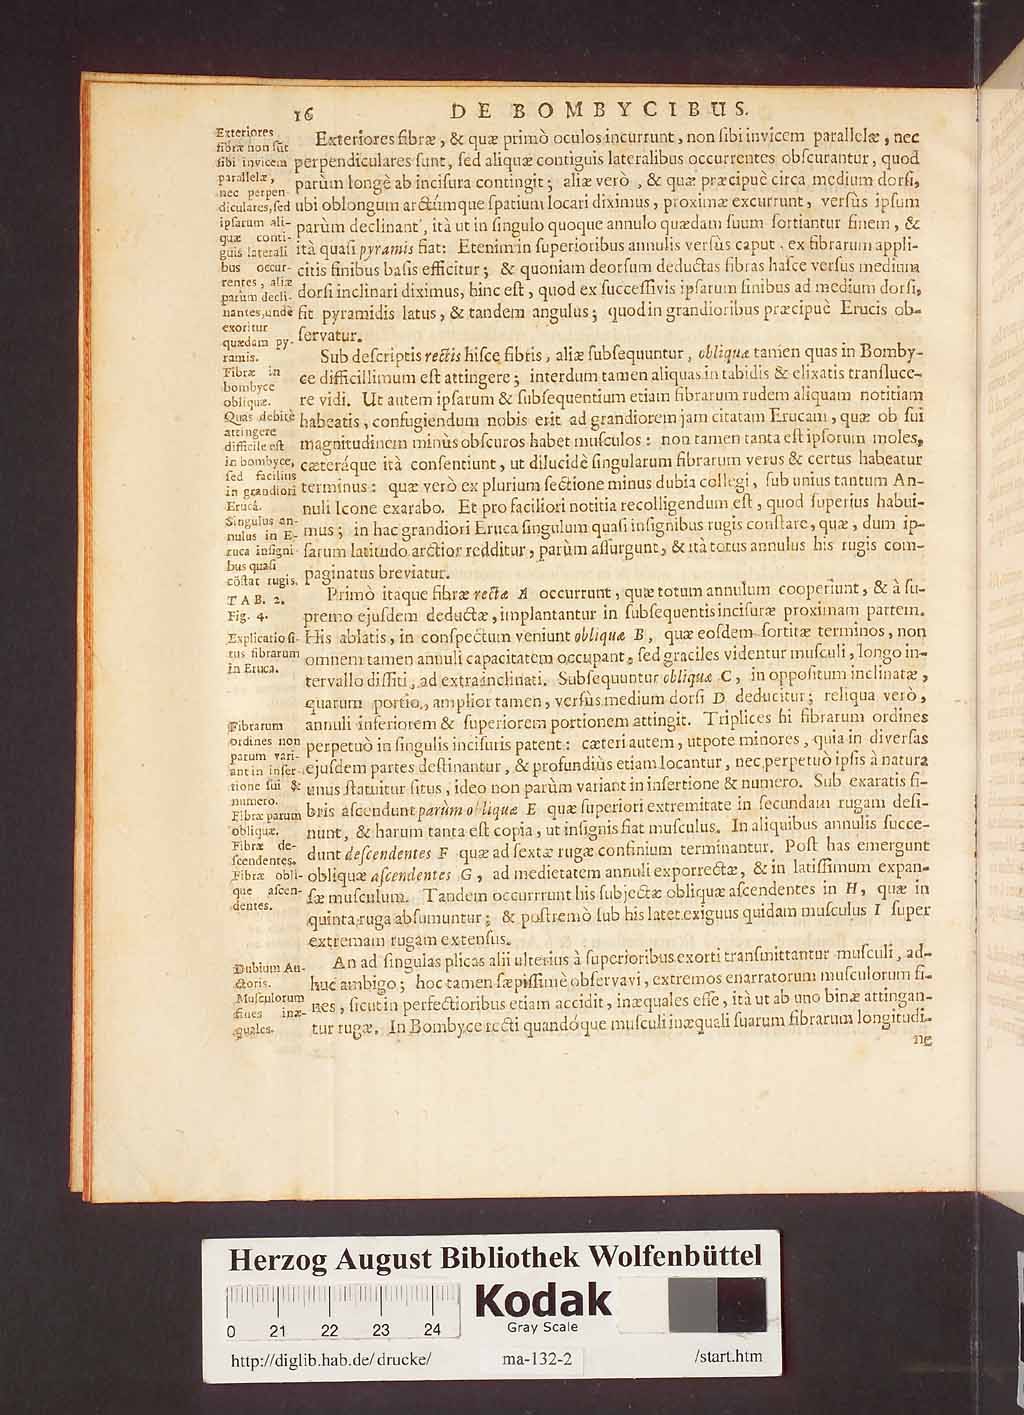 16 DE BOMBYCIBUS.
Exteriores
fibræ non sūt
sibi invicem
parallelæ,
nec perpen-
diculares, sed
ipsarum ali-
quæ conti-
guis laterali
bus occur-
rentes, aliæ
parùm decli-
nantes, undè
exoritur
quædam py-
ramis.
Fibræ in
bombyce
obliquæ.
Quas debitè
attingere
difficile est
in bombyce,
sed facilius
in grandiori
Erucâ.
Singulus an-
nulus in E-
ruca insigni-
bus quasi
cōstat rugis.
TAB. 2.
Fig. 4.
Explicatio si-
tus fibrarum
in Eruca.
Fibrarum
ordines non
parum vari-
ant in inser-
tione sui &
numero.
Fibræ parum
obliquæ.
Fibræ de-
scendentes.
Fibræ obli-
que ascen-
dentes.
Dubium Au-
ctoris.
Musculorum
fines inæ-
quales.
Exteriores fibræ, & quæ primò oculos incurrunt, non sibi invicem parallelæ, nec
perpendiculares sunt, sed aliquæ contiguis lateralibus occurrentes obscurantur, quod
parùm longè ab incisura contingit; aliæ verò, & quæ præcipuè circa medium dorsi,
ubi oblongum arctúmque spatium locari diximus, proximæ excurrunt, versùs ipsum
parùm declinant, ità ut in singulo quoque annulo quædam suum sortiantur finem, &
ità quasi pyramis fiat: Etenim in superioribus annulis versùs caput, ex fibrarum appli-
citis finibus basis efficitur; & quoniam deorsum deductas fibras hasce versus medium
dorsi inclinari diximus, hinc est, quod ex successivis ipsarum finibus ad medium dorsi,
fit pyramidis latus, & tandem angulus; quod in grandioribus præcipuè Erucis ob-
servatur.
Sub descriptis rectis hisce fibris, aliæ subsequuntur, obliquæ tamen quas in Bomby-
ce difficillimum est attingere; interdum tamen aliquas in tabidis & elixatis transluce-
re vidi. Ut autem ipsarum & subsequentium etiam fibrarum rudem aliquam notitiam
habeatis, confugiendum nobis erit ad grandiorem jam citatam Erucam, quæ ob sui
magnitudinem minùs obscuros habet musculos: non tamen tanta est ipsorum moles,
cæteráque ità consentiunt, ut dilucidè singularum fibrarum verus & certus habeatur
terminus: quæ verò ex plurium sectione minus dubia collegi, sub unius tantum An-
nuli Icone exarabo. Et pro faciliori notitia recolligendum est, quod superius habui-
mus; in hac grandiori Eruca singulum quasi insignibus rugis constare, quæ, dum ip-
sarum latitudo arctior redditur, parùm assurgunt, & ità totus annulus his rugis com-
paginatus breviatur.
Primò itaque fibræ rectæ A occurrunt, quæ totum annulum cooperiunt, & à su-
premo ejusdem deductæ, implantantur in subsequentis incisuræ proximam partem.
His ablatis, in conspectum veniunt obliquæ B, quæ eosdem sortitæ terminos, non
omnem tamen annuli capacitatem occupant, sed graciles videntur musculi, longo in-
tervallo dissiti, ad extra inclinati. Subsequuntur obliquæ C, in oppositum inclinatæ,
quarum portio, amplior tamen, versùs medium dorsi D deducitur; reliqua verò,
annuli inferiorem & superiorem portionem attingit. Triplices hi fibrarum ordines
perpetuò in singulis incisuris patent: cæteri autem, utpote minores, quia in diversas
ejusdem partes destinantur, & profundiùs etiam locantur, nec perpetuò ipsis à natura
unus statuitur situs, ideo non parùm variant in insertione & numero. Sub exaratis fi-
bris ascendunt parùm obliquæ E quæ superiori extremitate in secundam rugam desi-
nunt, & harum tanta est copia, ut insignis fiat musculus. In aliquibus annulis succe-
dunt descendentes F quæ ad sextæ rugæ confinium terminantur. Post has emergunt
obliquæ ascendentes G, ad medietatem annuli exporrectæ, & in latissimum expan-
sæ musculum. Tandem occurrrunt his subjectæ obliquæ ascendentes in H, quæ in
quinta ruga absumuntur; & postremò sub his latet exiguus quidam musculus I super
extremam rugam extensus.
An ad singulas plicas alii ulterius à superioribus exorti transmittantur musculi, ad-
huc ambigo; hoc tamen sæpissimè observavi, extremos enarratorum musculorum fi-
nes, sicut in perfectioribus etiam accidit, inæquales esse, ità ut ab uno binæ attingan-
tur rugæ. In Bombyce recti quandóque musculi inæquali suarum fibrarum longitudi-
ne
Herzog August Bibliothek Wolfenbüttel
0 21 22 23 24
Kodak
Gray Scale
http://diglib.hab.de/drucke/ ma-132-2 /start.htm